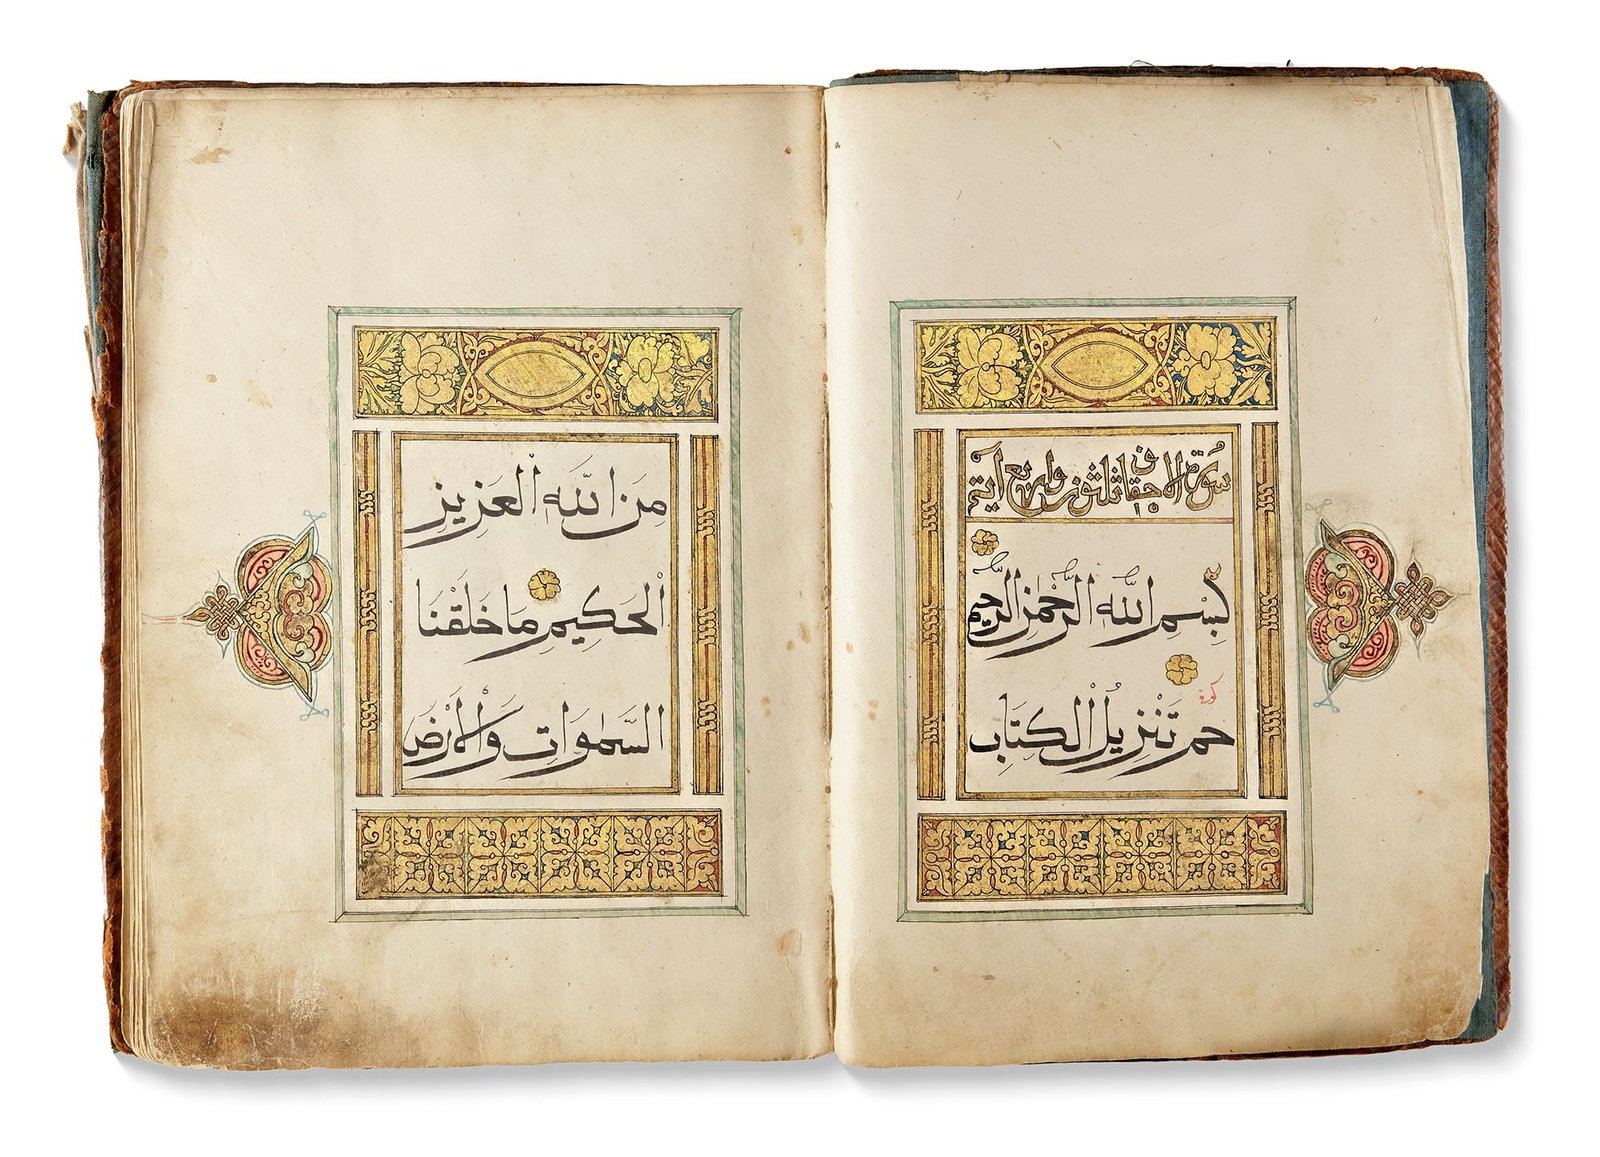 سورة الاحقاف ثلثون واربع آيتم
بِسْمِ اللّٰهِ الرَّحْمٰنِ الرَّحِيمِ
كوفة
حم تَنْزِيلُ الْكِتَابِ
مِنَ اللّٰهِ الْعَزِيزِ
الْحَكِيمِ مَا خَلَقْنَا
السَّمٰوَاتِ وَالْاَرْضَ